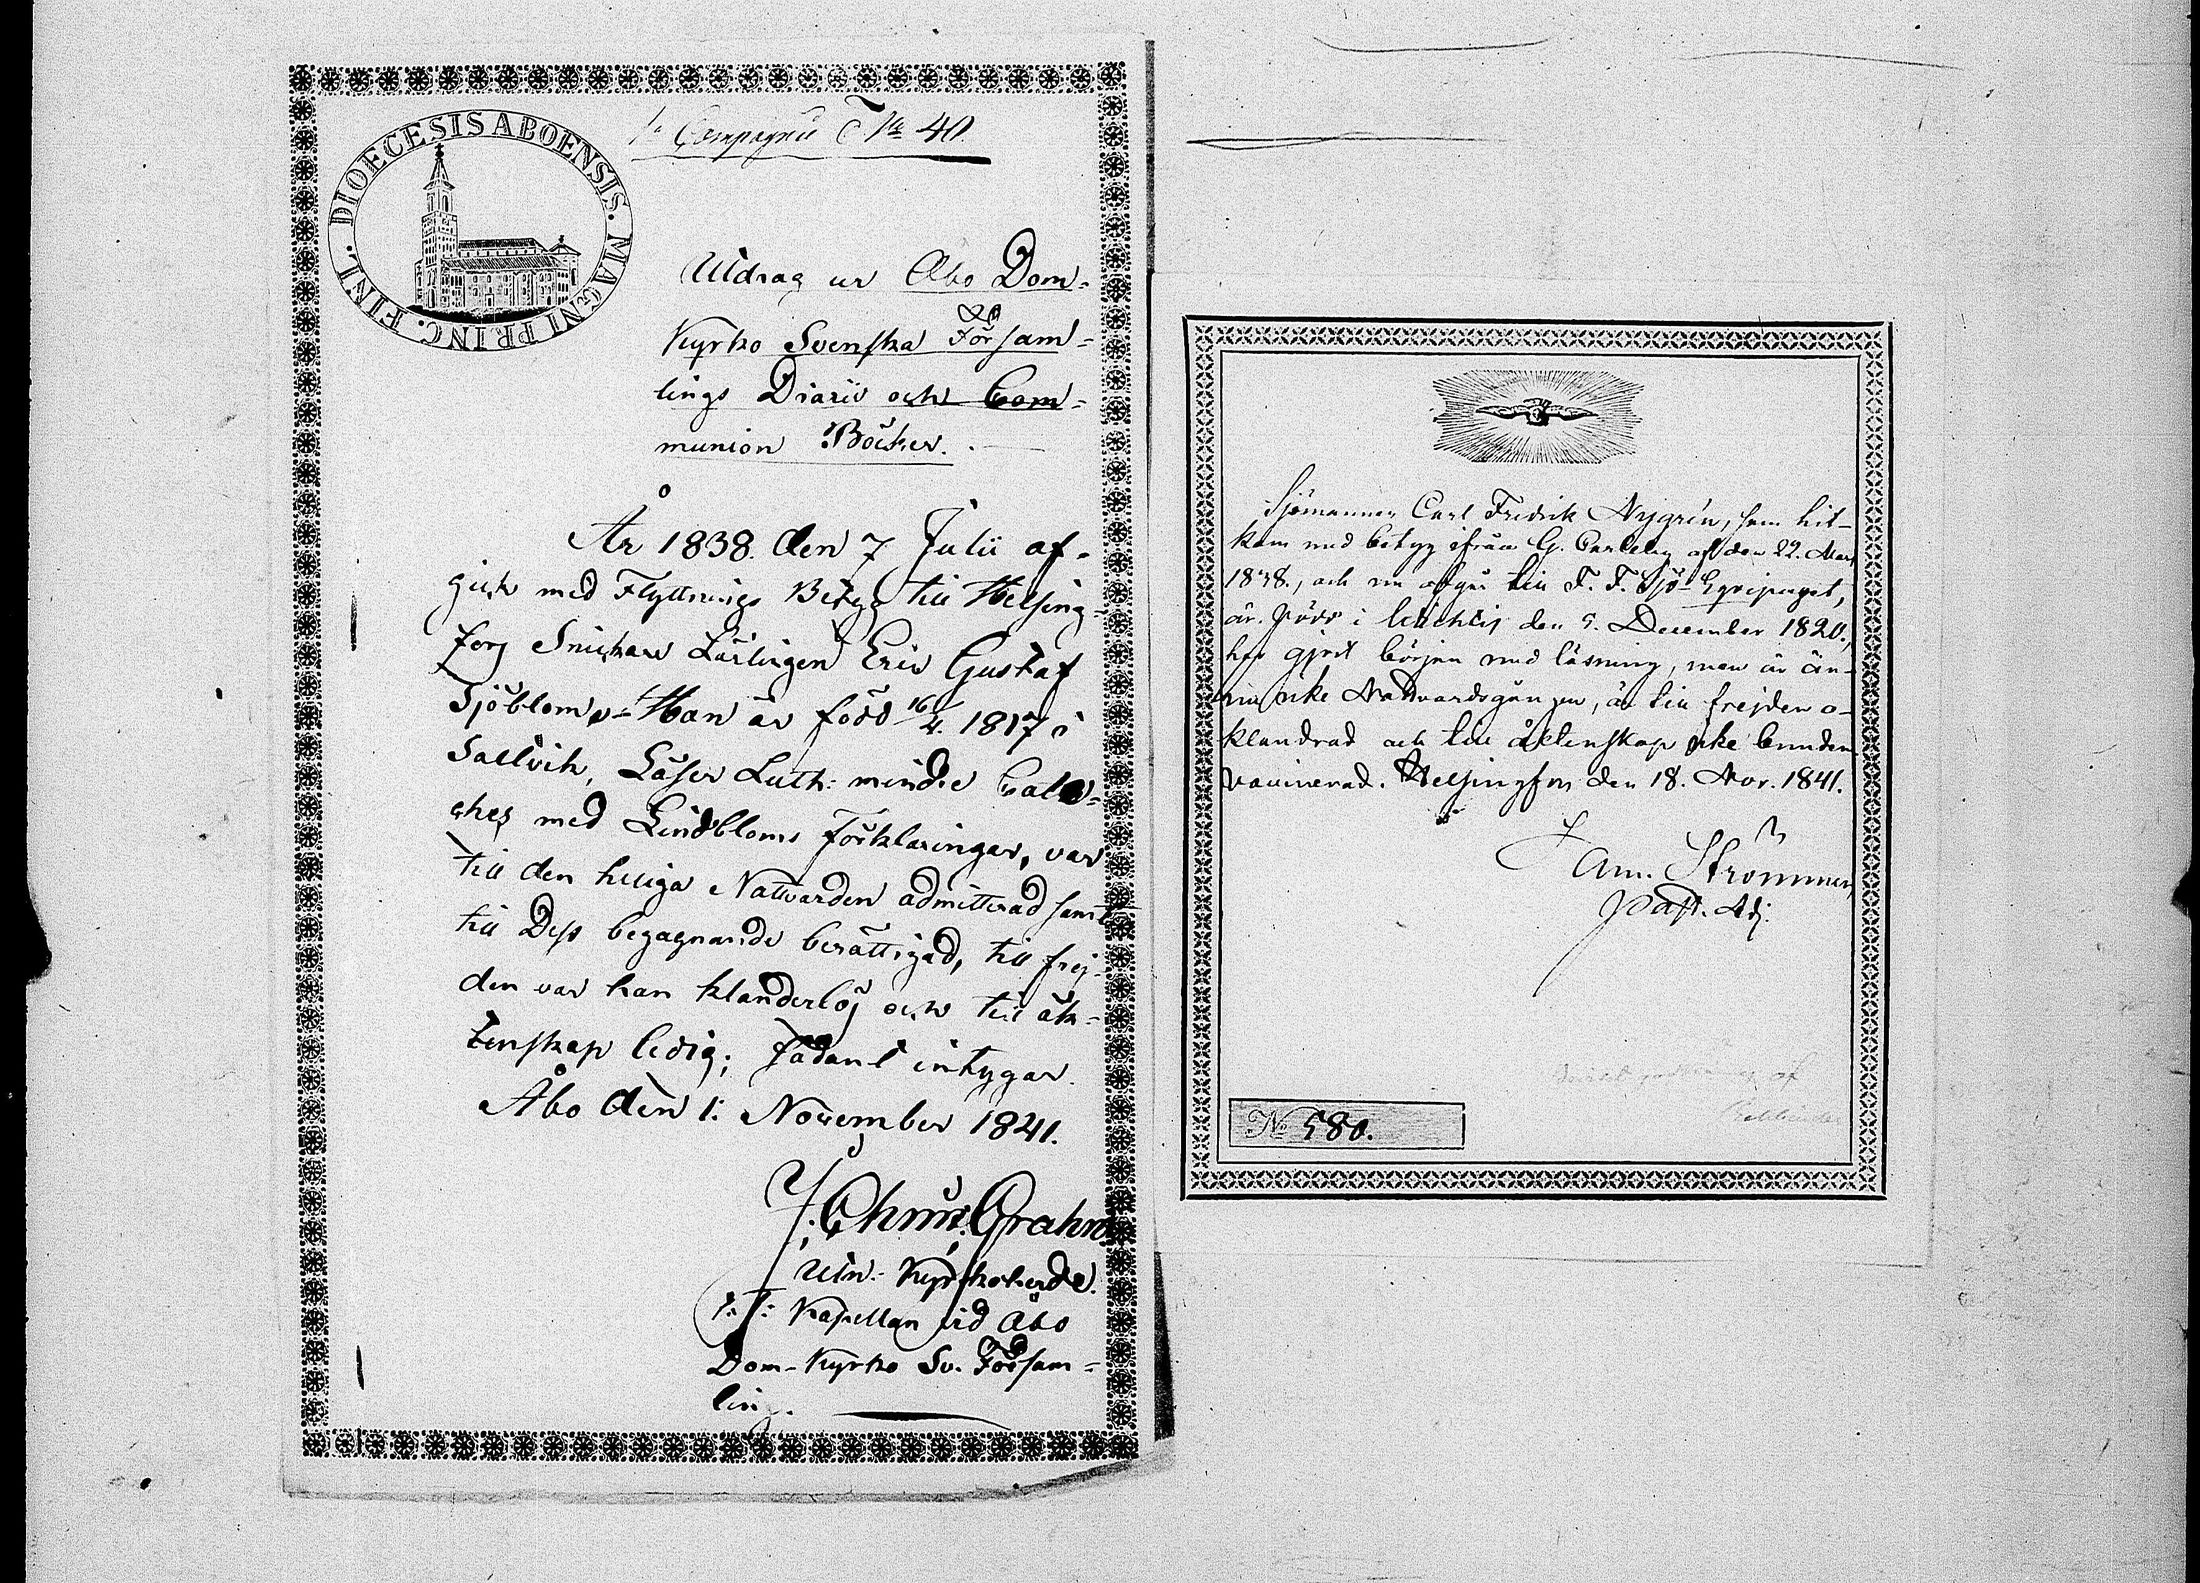 DIOECESIS ABOENSIS. MAGNI PRINC. FINL.
1a Compagnie No 40.
Utdrag ur Åbo Dom-
Kyrko Svenska Försam-
lings Diarii och Com-
munion Böcker.
År 1838. den 7 Julii af-
gick med Flyttnings Betyg till Helsing-
fors Snickare Lärlingen Eric Gustaf
Sjöblom. Han är född 16/4. 1817 i
Sallvik, Läser Luth: mindre Cate-
ches med Lindbloms Förklaringar, var
till den heliga Nattvarden admitterad samt
till Dess begagnande berättigad, till frej-
den var han klanderlös och till äk-
tenskap ledig; sådant intygar.
Åbo den 1: November 1841.
J. Chriss. Grahn
Utn: Kyrkoherde.
t: f: Kapellan vid Åbo
Dom-Kyrko Sv. Försam-
ling.
Sjömannen Carl Fredrik Nygrén, som hit-
kom med betyg ifrån G. Carleby af den 22. Mars
1838., och nu afgår till F. F. Sjö-Equipaget,
är född i den 5. December 1820.,
har gjort början med läsning, men är än-
nu icke Nattvardsgången, är till frejden o-
klandrad och till äktenskap icke bunden
vaccinerad. Helsingfors den 18. Nov. 1841.
Am. Strömmer
Past. Adj.
No 580.